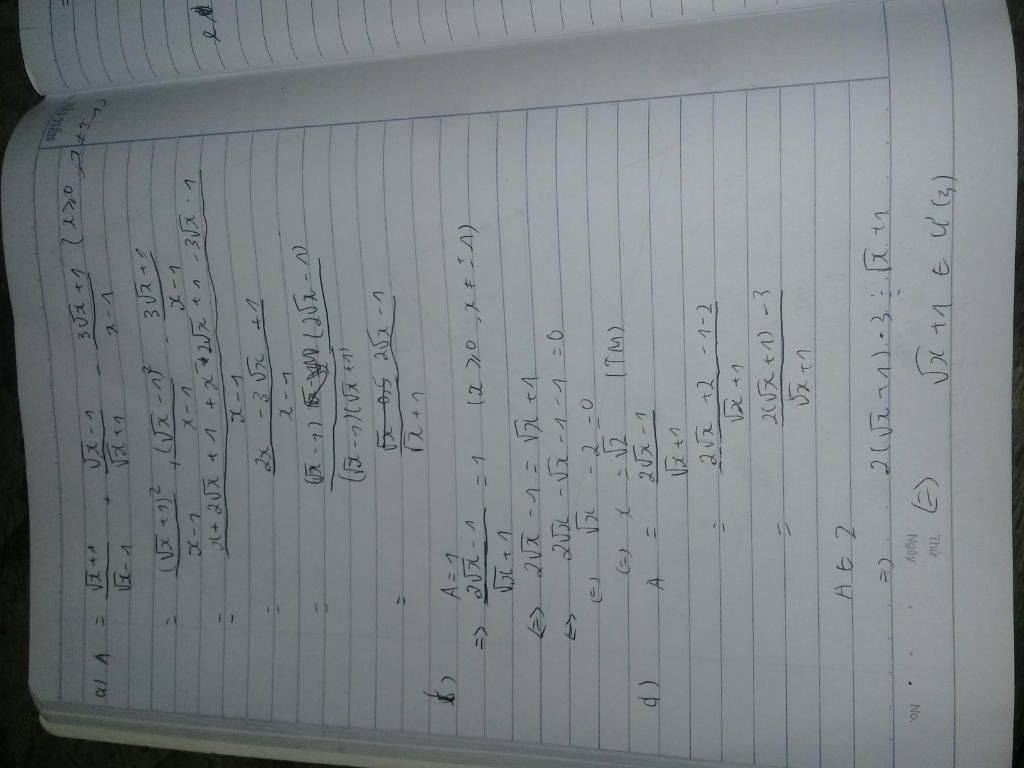 a) A = (√x+1)/(√x-1) + (√x-1)/(√x+1) - (3√x+1)/(x-1) (x≥0
= (√x+1)²/(x-1) + (√x-1)²/(x-1) - (3√x+1)/(x-1)
= (x+2√x+1+x+2√x+1-3√x-1)/(x-1)
= (2x-3√x+1)/(x-1)
= (√x-1)(2√x-1)/(√x-1)(√x+1)
= (2√x-1)/(√x+1)
b) A=1
=> (2√x-1)/(√x+1) = 1 (x≥0, x≠±1)
<=> 2√x-1 = √x+1
<=> 2√x-√x-1-1=0
<=> √x-2=0
<=> x=√2 (TM)
d) A = (2√x-1)/(√x+1)
= (2√x+2-1-2)/(√x+1)
= (2(√x+1)-3)/(√x+1)
A ∈ Z
=> 2(√x+1)-3 ⋮ √x+1
<=> √x+1 ∈ Ư(3)
Thứ
Ngày
No.